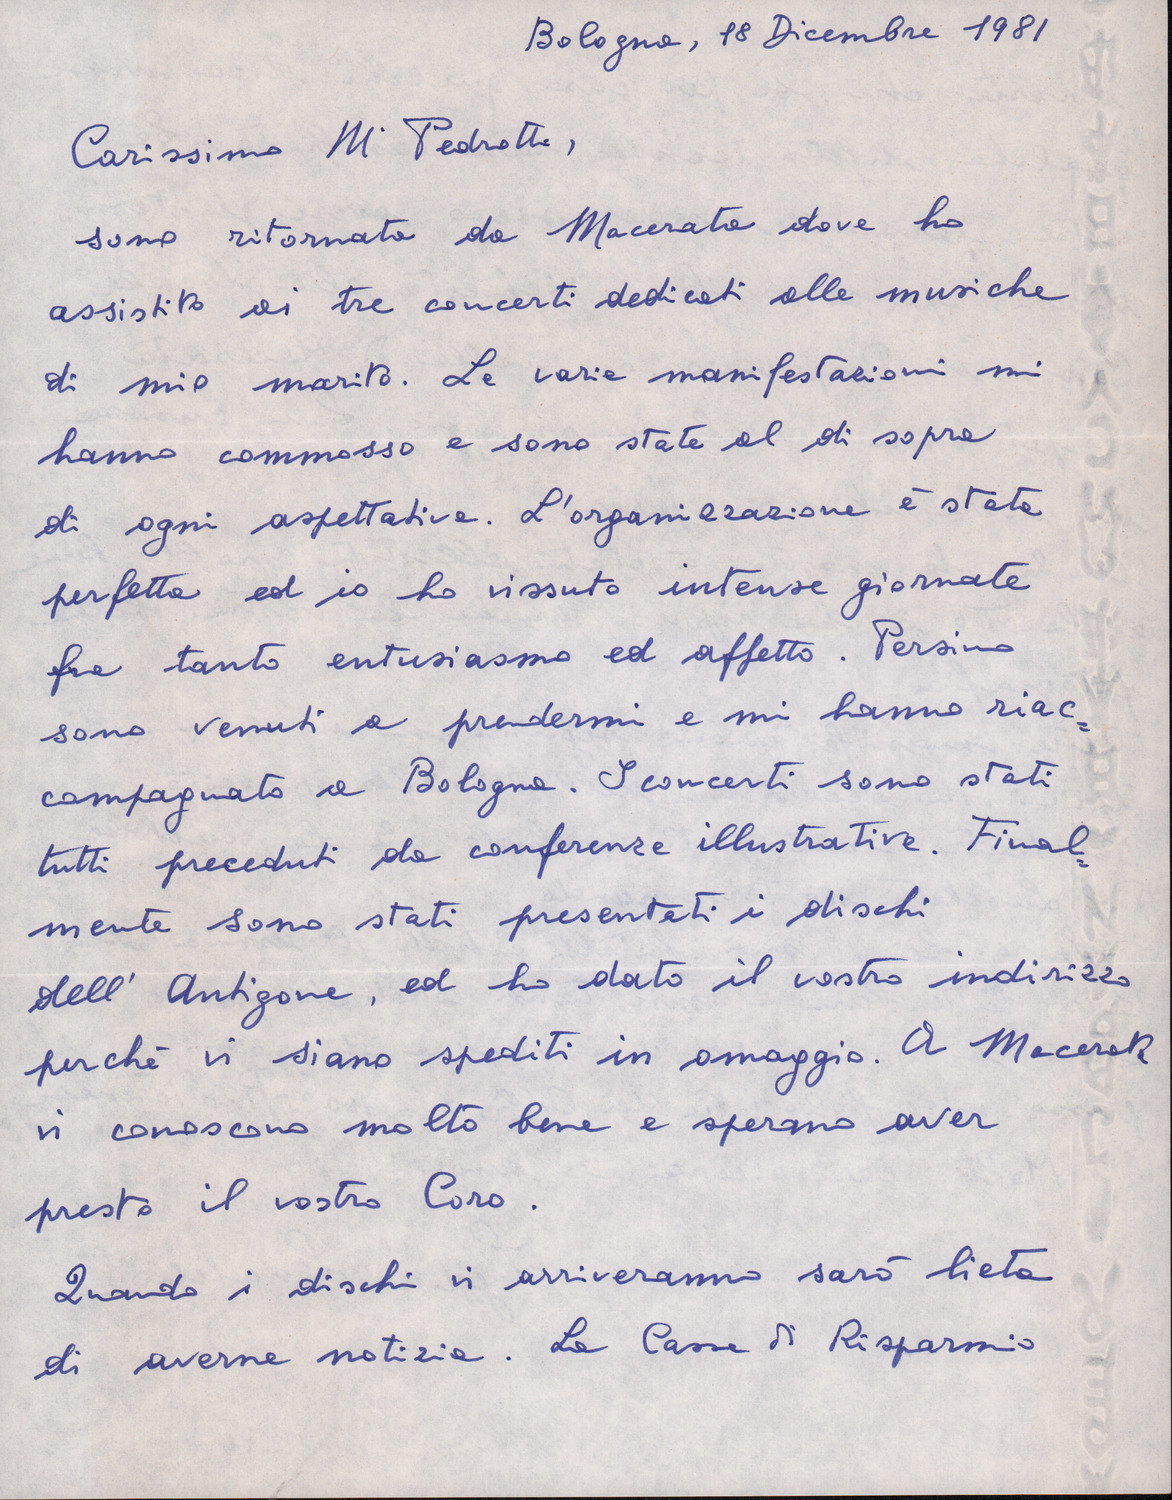 Bologna, 18 Dicembre 1981
Carissimo Mº Pedrotti,
sono ritornata da Macerata dove ho
assistito ai tre concerti dedicati alle musiche
di mio marito. Le varie manifestazioni mi
hanno commosso e sono state al di sopra
di ogni aspettativa. L'organizzazione è stata
perfetta ed io ho vissuto intense giornate
fra tanto entusiasmo ed affetto. Persino
sono venuti a prendermi e mi hanno riac=
compagnata a Bologna. I concerti sono stati
tutti preceduti da conferenze illustrative. Final=
mente sono stati presentati i dischi
dell'Antigone, ed ho dato il vostro indirizzo
perchè vi siano spediti in omaggio. A Macerata
vi conoscono molto bene e sperano aver
presto il vostro Coro.
Quando i dischi vi arriveranno sarò lieta
di averne notizia. La Cassa di Risparmio